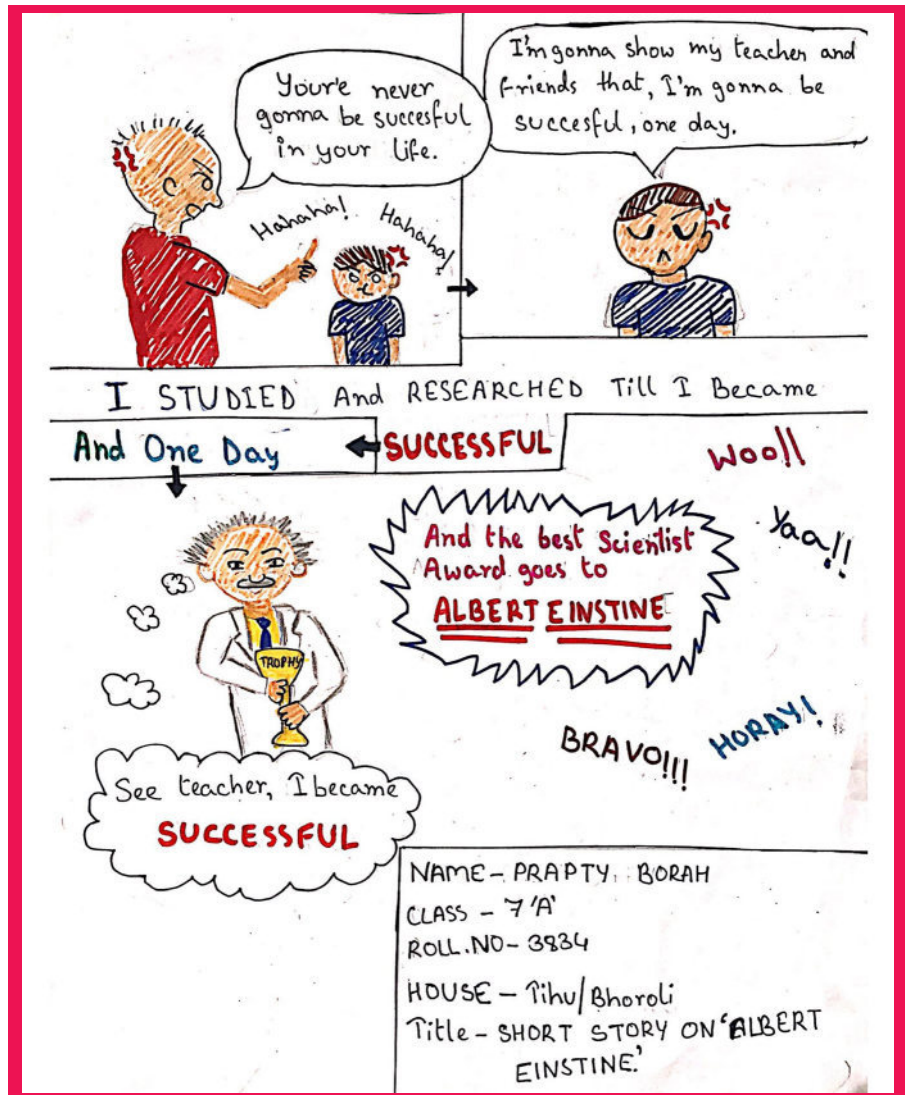 Your'e never
gonna be succesful
in your life.
Hahaha!
Hahaha!
I'm gonna show my teacher and
friends that, I'm gonna be
succesful, one day.
I STUDIED And RESEARCHED Till I Became
SUCCESSFUL
And One Day
Woo!!
Yaa!!
And the best Scientist
Award goes to
ALBERT EINSTINE
TROPHY
BRAVO!!!
HORAY!
See teacher, I became
SUCCESSFUL
NAME - PRAPTY BORAH
CLASS - 7 'A'
ROLL.NO - 3834
HOUSE - Tihu/Bhoroli
Title - SHORT STORY ON 'ALBERT
EINSTINE.'